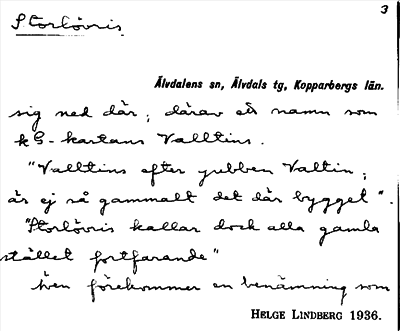 3
Storlövris
Älvdalens sn, Älvdals tg, Kopparbergs län.
sig ned där; därav ett namn som
kG-kartans Valltins.
"Valltins efter gubben Valtin,
är ej så gammalt det där bygget".
"Storlövris kallar dock alla gamla
stället fortfarande"
Även förekommer en benämning som
HELGE LINDBERG 1936.